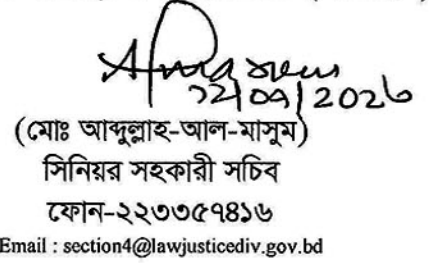 ২২/০৭/2026
(মোঃ আব্দুল্লাহ-আল-মাসুম)
সিনিয়র সহকারী সচিব
ফোন-২২৩৩৫৭৪১৬
Email : section4@lawjusticediv.gov.bd